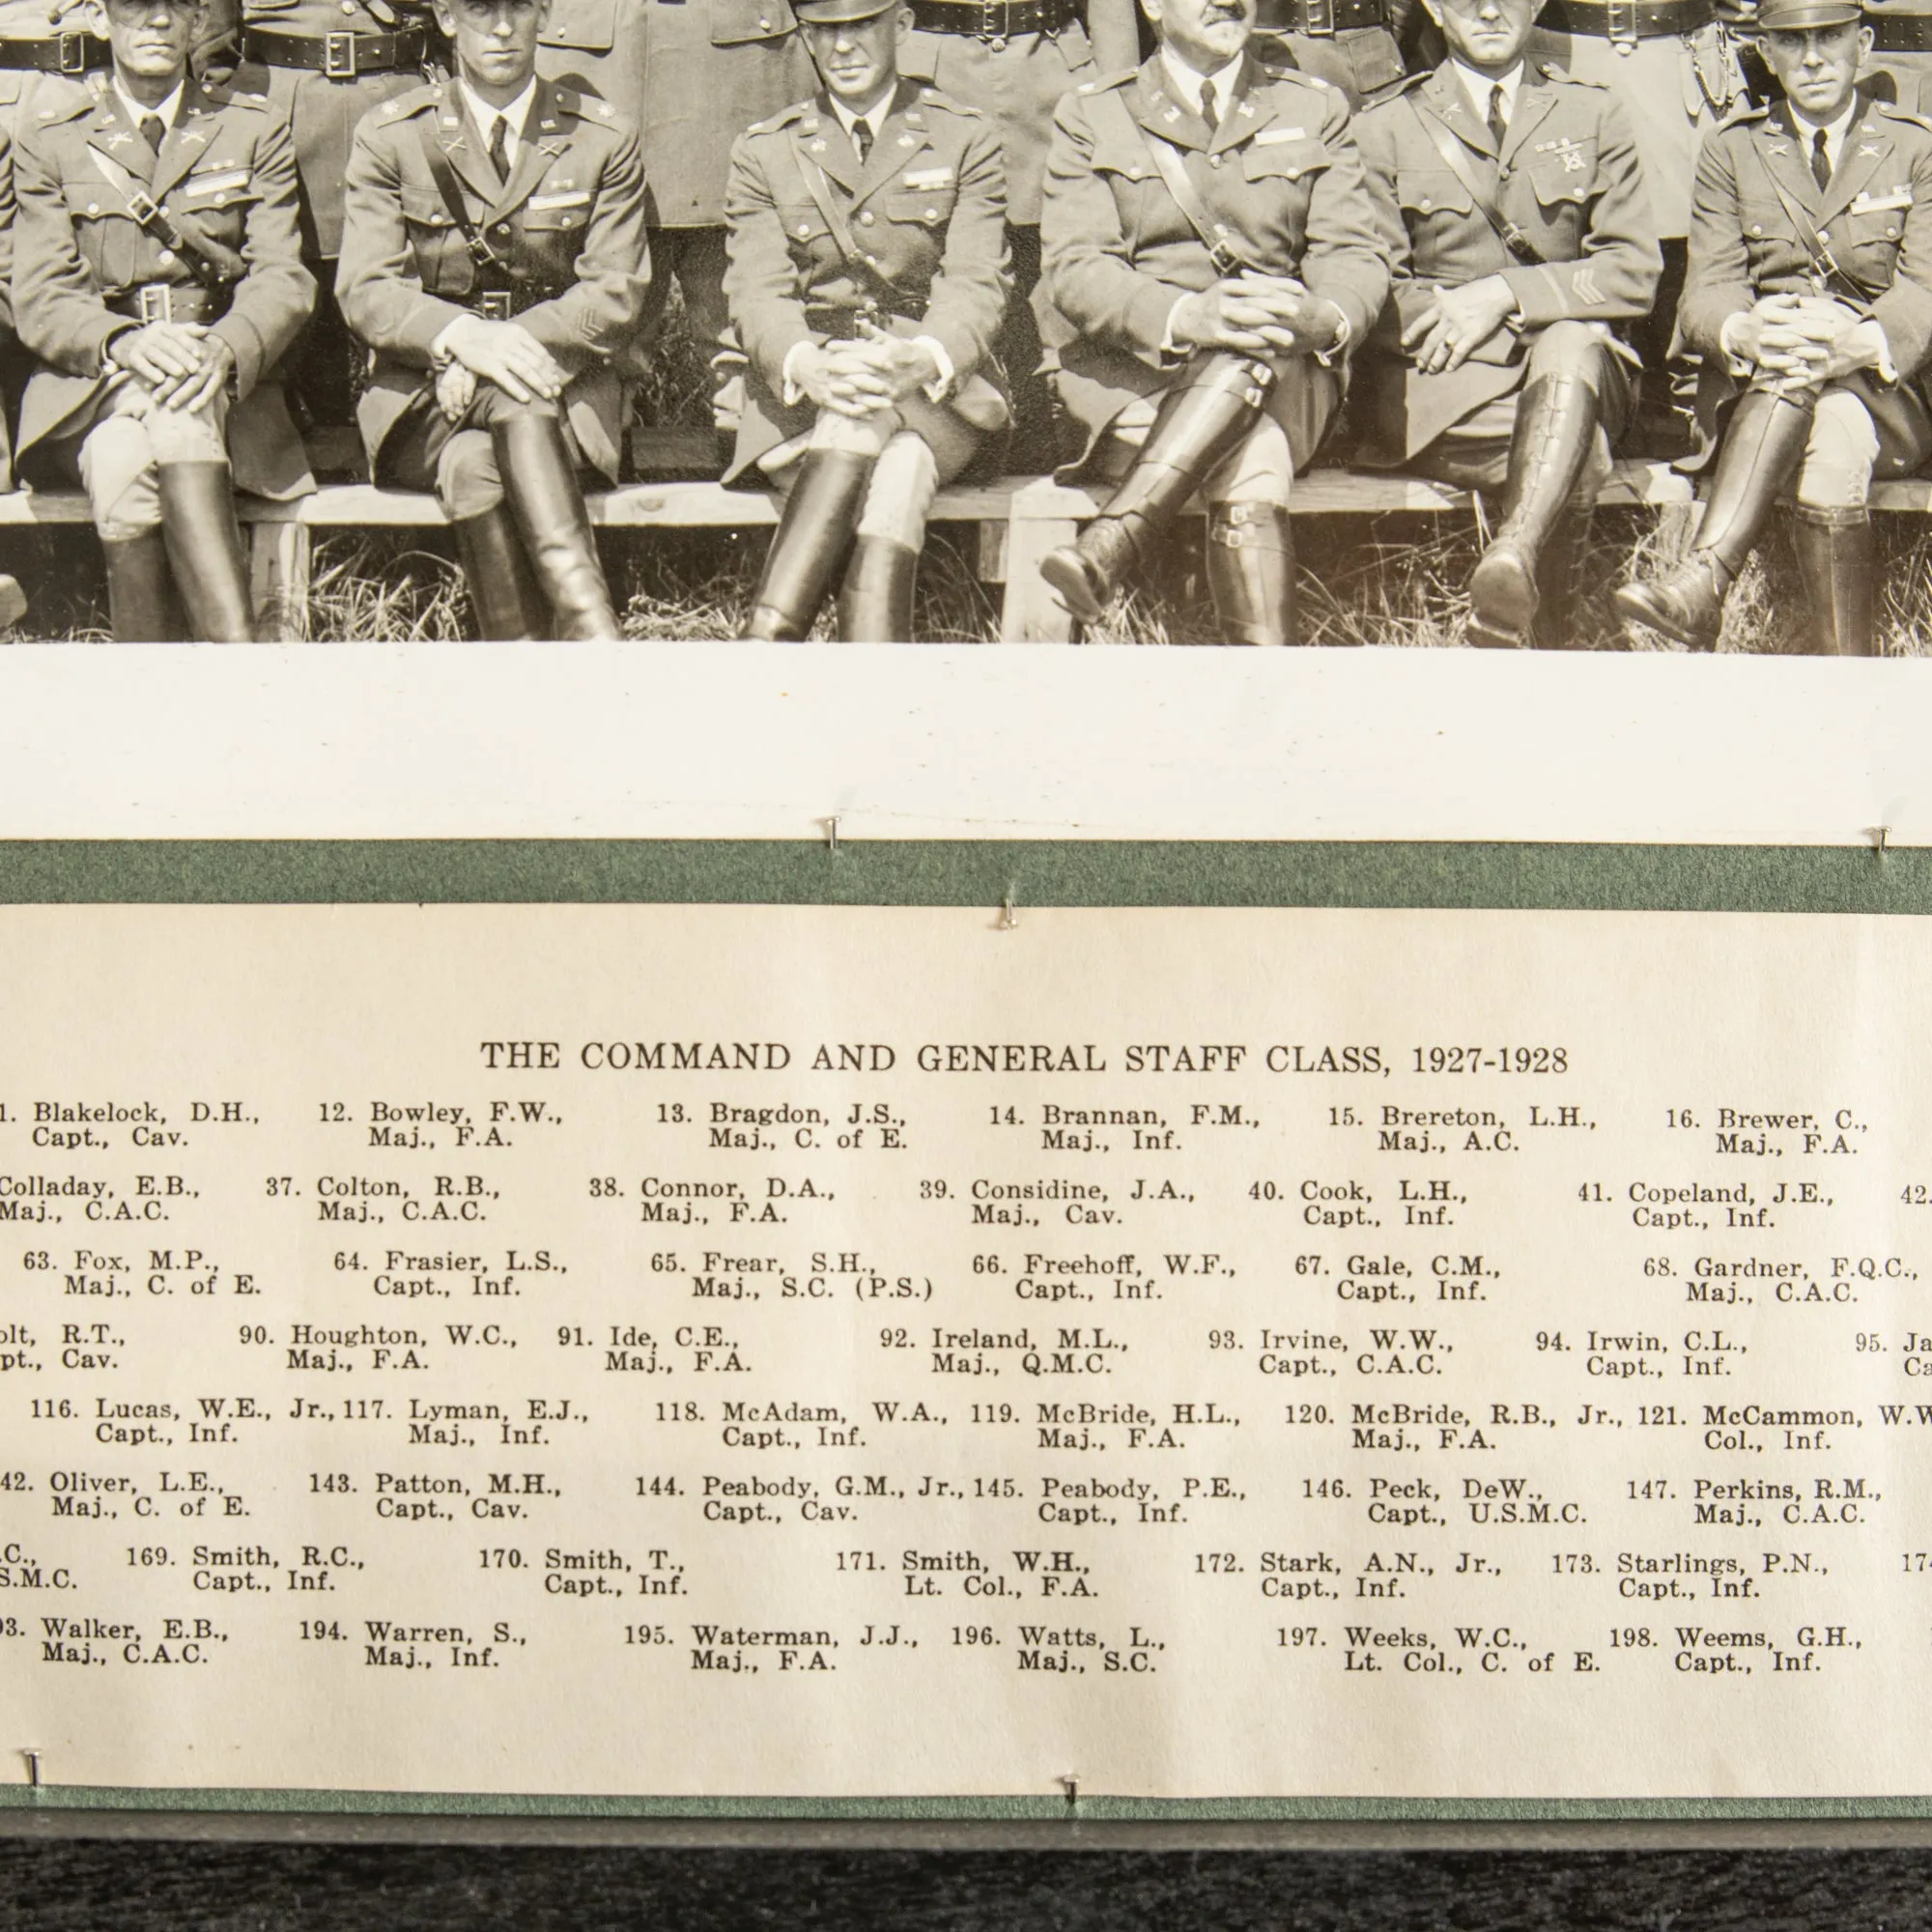 THE COMMAND AND GENERAL STAFF CLASS, 1927-1928
1. Blakelock, D.H., 12. Bowley, F.W., 13. Bragdon, J.S., 14. Brannan, F.M., 15. Brereton, L.H., 16. Brewer, C.,
Capt., Cav. Maj., F.A. Maj., C. of E. Maj., Inf. Maj., A.C. Maj., F.A.
Colladay, E.B., 37. Colton, R.B., 38. Connor, D.A., 39. Considine, J.A., 40. Cook, L.H., 41. Copeland, J.E., 42.
Maj., C.A.C. Maj., C.A.C. Maj., F.A. Maj., Cav. Capt., Inf. Capt., Inf.
63. Fox, M.P., 64. Frasier, L.S., 65. Frear, S.H., 66. Freehoff, W.F., 67. Gale, C.M., 68. Gardner, F.Q.C.,
Maj., C. of E. Capt., Inf. Maj., S.C. (P.S.) Capt., Inf. Capt., Inf. Maj., C.A.C.
olt, R.T., 90. Houghton, W.C., 91. Ide, C.E., 92. Ireland, M.L., 93. Irvine, W.W., 94. Irwin, C.L., 95. Ja
pt., Cav. Maj., F.A. Maj., F.A. Maj., Q.M.C. Capt., C.A.C. Capt., Inf. Ca
116. Lucas, W.E., Jr., 117. Lyman, E.J., 118. McAdam, W.A., 119. McBride, H.L., 120. McBride, R.B., Jr., 121. McCammon, W.W
Capt., Inf. Maj., Inf. Capt., Inf. Maj., F.A. Maj., F.A. Col., Inf.
42. Oliver, L.E., 143. Patton, M.H., 144. Peabody, G.M., Jr., 145. Peabody, P.E., 146. Peck, DeW., 147. Perkins, R.M.,
Maj., C. of E. Capt., Cav. Capt., Cav. Capt., Inf. Capt., U.S.M.C. Maj., C.A.C.
.C., 169. Smith, R.C., 170. Smith, T., 171. Smith, W.H., 172. Stark, A.N., Jr., 173. Starlings, P.N., 174
S.M.C. Capt., Inf. Capt., Inf. Lt. Col., F.A. Capt., Inf. Capt., Inf.
93. Walker, E.B., 194. Warren, S., 195. Waterman, J.J., 196. Watts, L., 197. Weeks, W.C., 198. Weems, G.H.,
Maj., C.A.C. Maj., Inf. Maj., F.A. Maj., S.C. Lt. Col., C. of E. Capt., Inf.